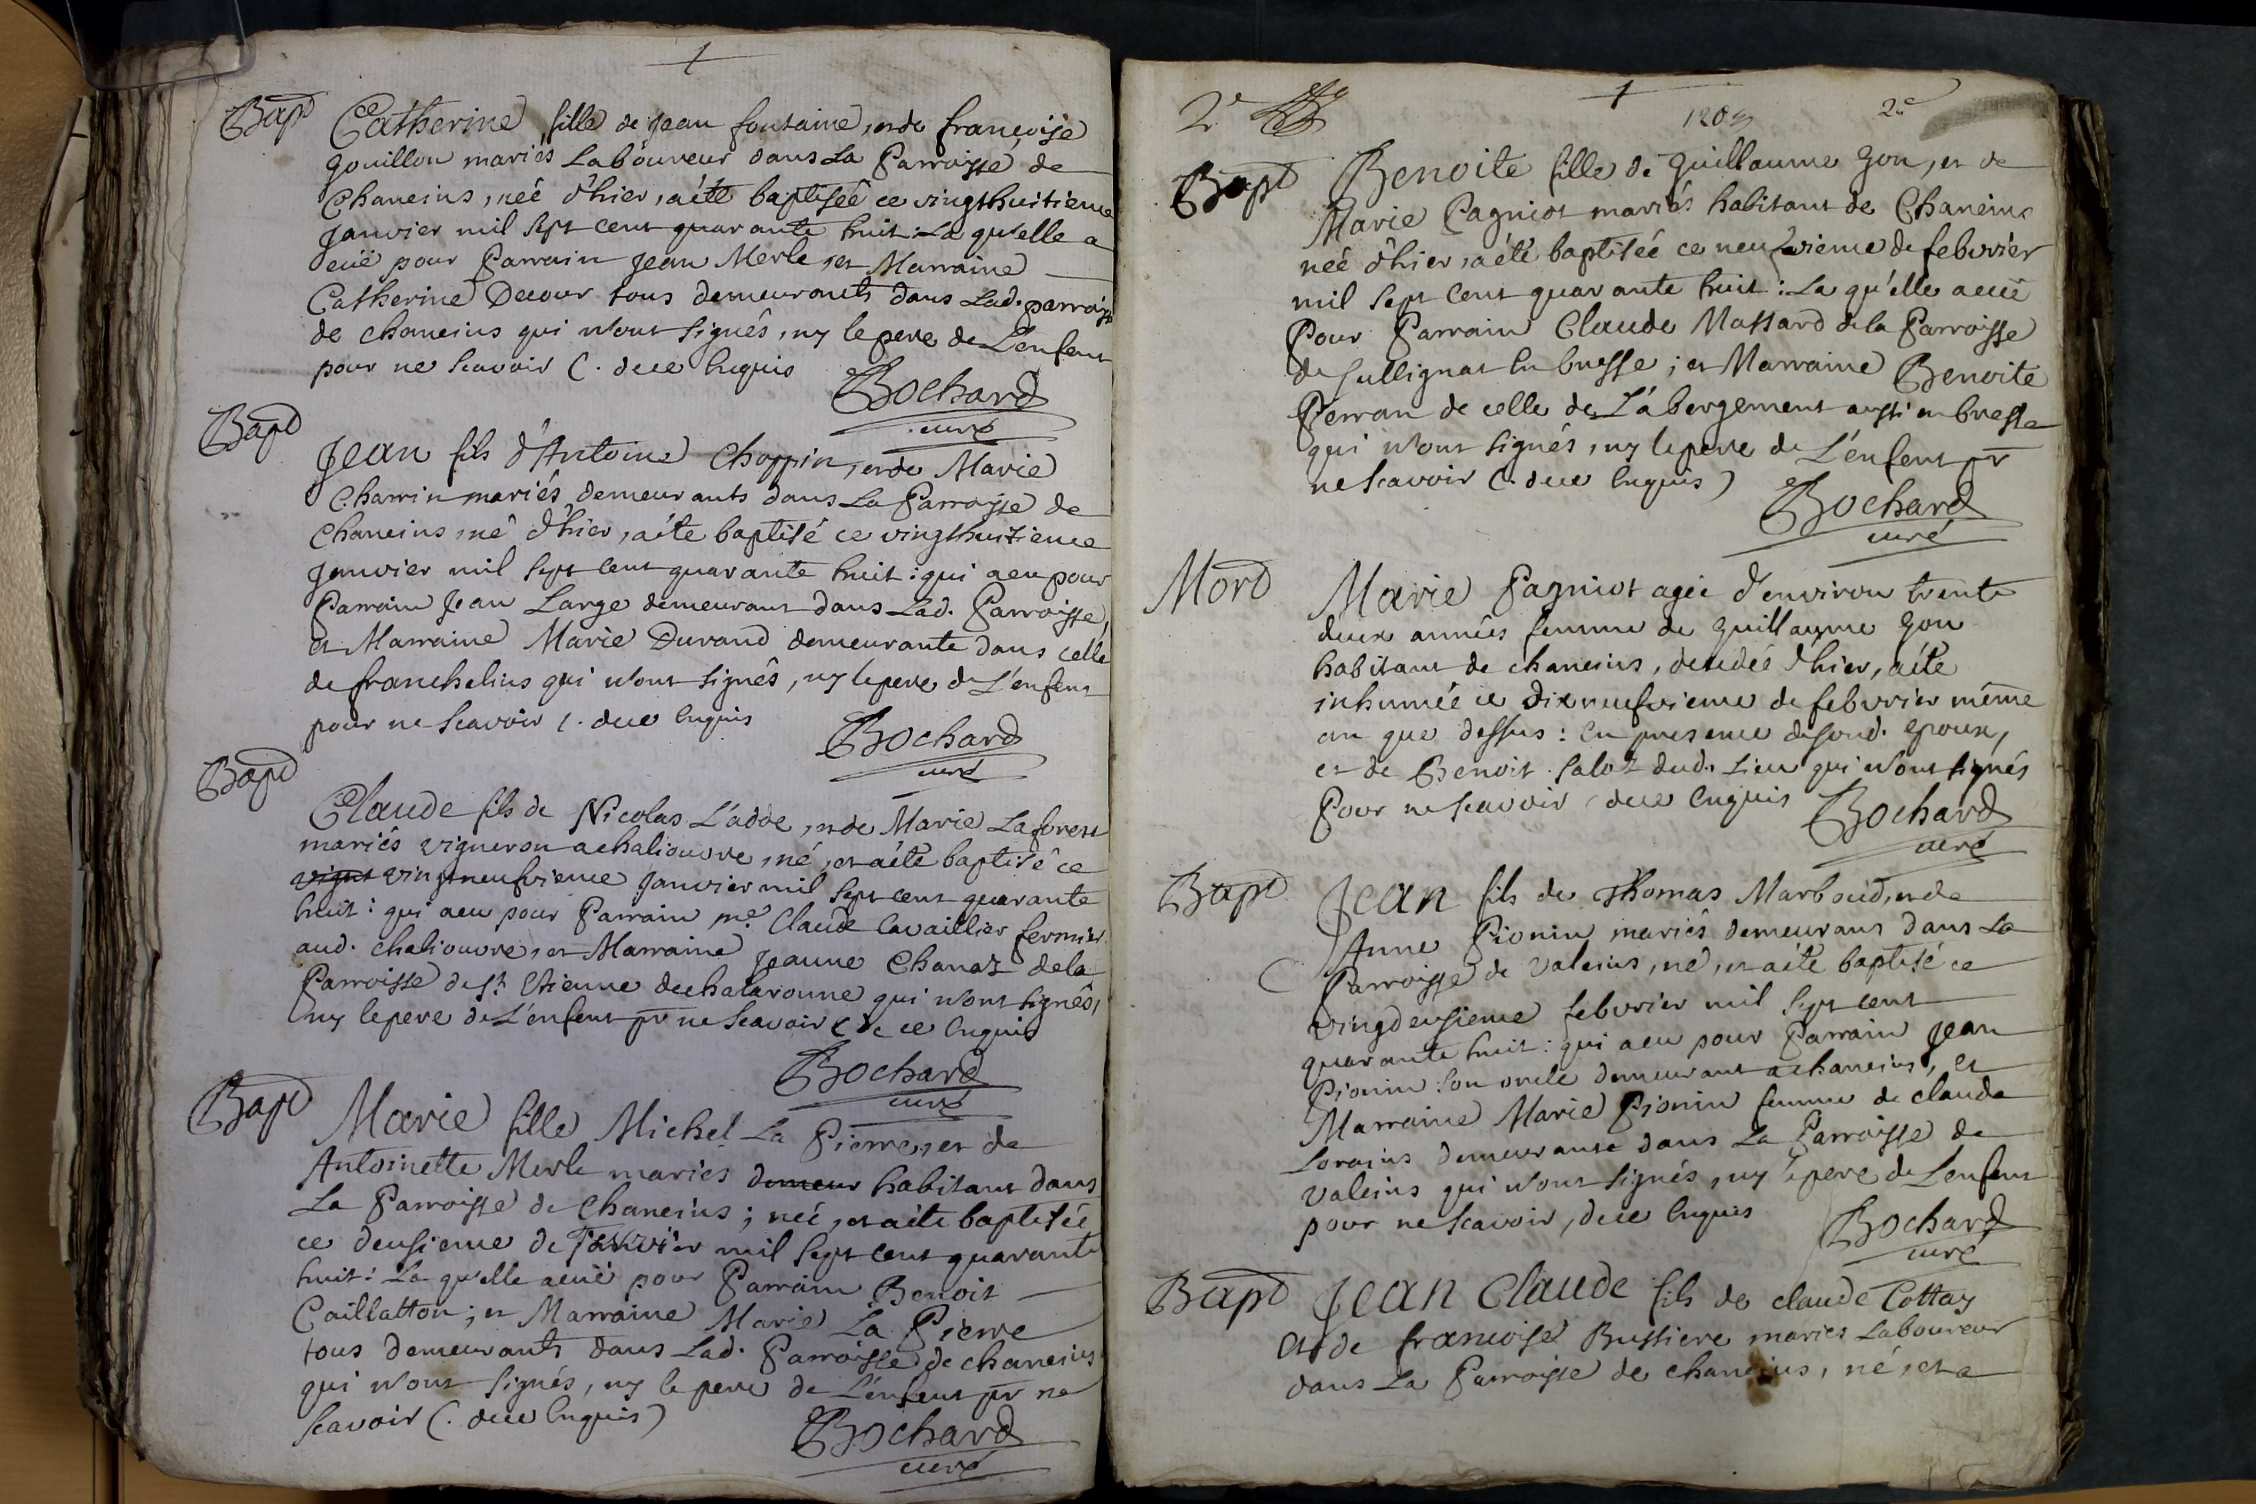 Bapt
Catherine fille de jean fontaine, et de françoise
gouillon mariés Laboureur dans La Parroisse de
Chaneins, neé d'hier, aété baptisée ce vingthuitieme
janvier mil sept cent quarante huit: La qu'elle a
eüe pour Parrain jean Merle, et Marraine
Catherine Decour tous demeurants dans Lad. parroisse
de chaneins qui n'ont signés, ny le pere de L'enfent
pour ne scavoir (. de ce Enquis
Bochard
curé
Bapt
Jean fils d'Antoine Choppin, et de Marie
Charrin mariés demeurants dans La Parroisse de
Chaneins, né d'hier, aété baptisé ce vingthuitieme
Janvier mil sept cent quarante huit: qui aeu pour
Parrain Jean Large demeurant dans Lad. Parroisse,
et Marraine Marie Durand demeurante dans celle
de franchelins qui n'ont signés, ny le pere de L'enfent
pour ne scavoir (. de ce Enquis
Bochard
curé
Bapt
Claude fils de Nicolas L'adde, et de Marie Laforest
mariés vigneron a chaliouvre, né, et aété baptisé ce
vingt vingtneufvieme Janvier mil sept cent quarante
huit: qui aeu pour Parrain me. Claude Cavaillier fermier
aud. chaliouvre, et Marraine Jeanne Chanat dela
Parroisse de St. Etienne de chalaronne qui n'ont signés,
ny le pere de L'enfent pr ne scavoir (. de ce Enquis
Bochard
curé
Bapt
Marie fille Michel La Pierre, et de
Antoinette Merle mariés demeur habitant dans
La Parroisse de Chaneins; neé, et aété baptisée
ce deusieme de mil sept cent quarante
huit: La qu'elle aeüe pour Parrain Benoit
Caillatton; et Marraine Marie La Pierre
tous demeurants dans Lad. Parroisse de chaneins
qui n'ont signés, ny le pere de L'enfent pr ne
scavoir (. de ce Enquis)
Bochard
curé
2e
1209
2e
Bapt
Benoite fille de guillaume gon, et de
Marie Pagniot mariés habitant de Chaneins
neé d'hier, aété baptiséé ce neufvieme de febvrier
mil sept cent quarante huit: La qu'elle aeüe
Pour Parrain Claude Massard dela Parroisse
de sullignat En bresse; et Marraine Benoite
Perran de celle de L'abergement aussi en bresse
qui n'ont signés, ny le pere de L'énfent pr
ne scavoir (. de ce Enquis)
Bochard
curé
Mort
Marie Pagniot agée d'environ trente
deux années femme de guillaume gon
habitant de chaneins, decedée d'hier, aété
inhumée ce dixneufvieme de febvrier même
an que dessus: En presence de sond. epoux,
et de Benoit salot dud. Lieu qui n'ont signés
Pour ne scavoir, de ce Enquis
Bochard
curé
Bapt
Jean fils de Thomas Marboud, et de
Anne Pionin mariés demeurant dans La
Parroisse de valeins, né, et aété baptisé ce
vingdeusieme febvrier mil sept cent
quarante huit: qui aeu pour Parrain Jean
Pionin son oncle demeurant a chaneins, et
Marraine Marie Pionin femme de claude
Lorains demeurante dans La Parroisse de
valeins qui n'ont signés, ny le pere de L'enfent
pour ne scavoir, de ce Enquis
Bochard
curé
Bapt
Jean Claude fils de claude Cottay
et de francoise Bussiere mariés Laboureur
dans La Parroisse de chaneins, né, et a